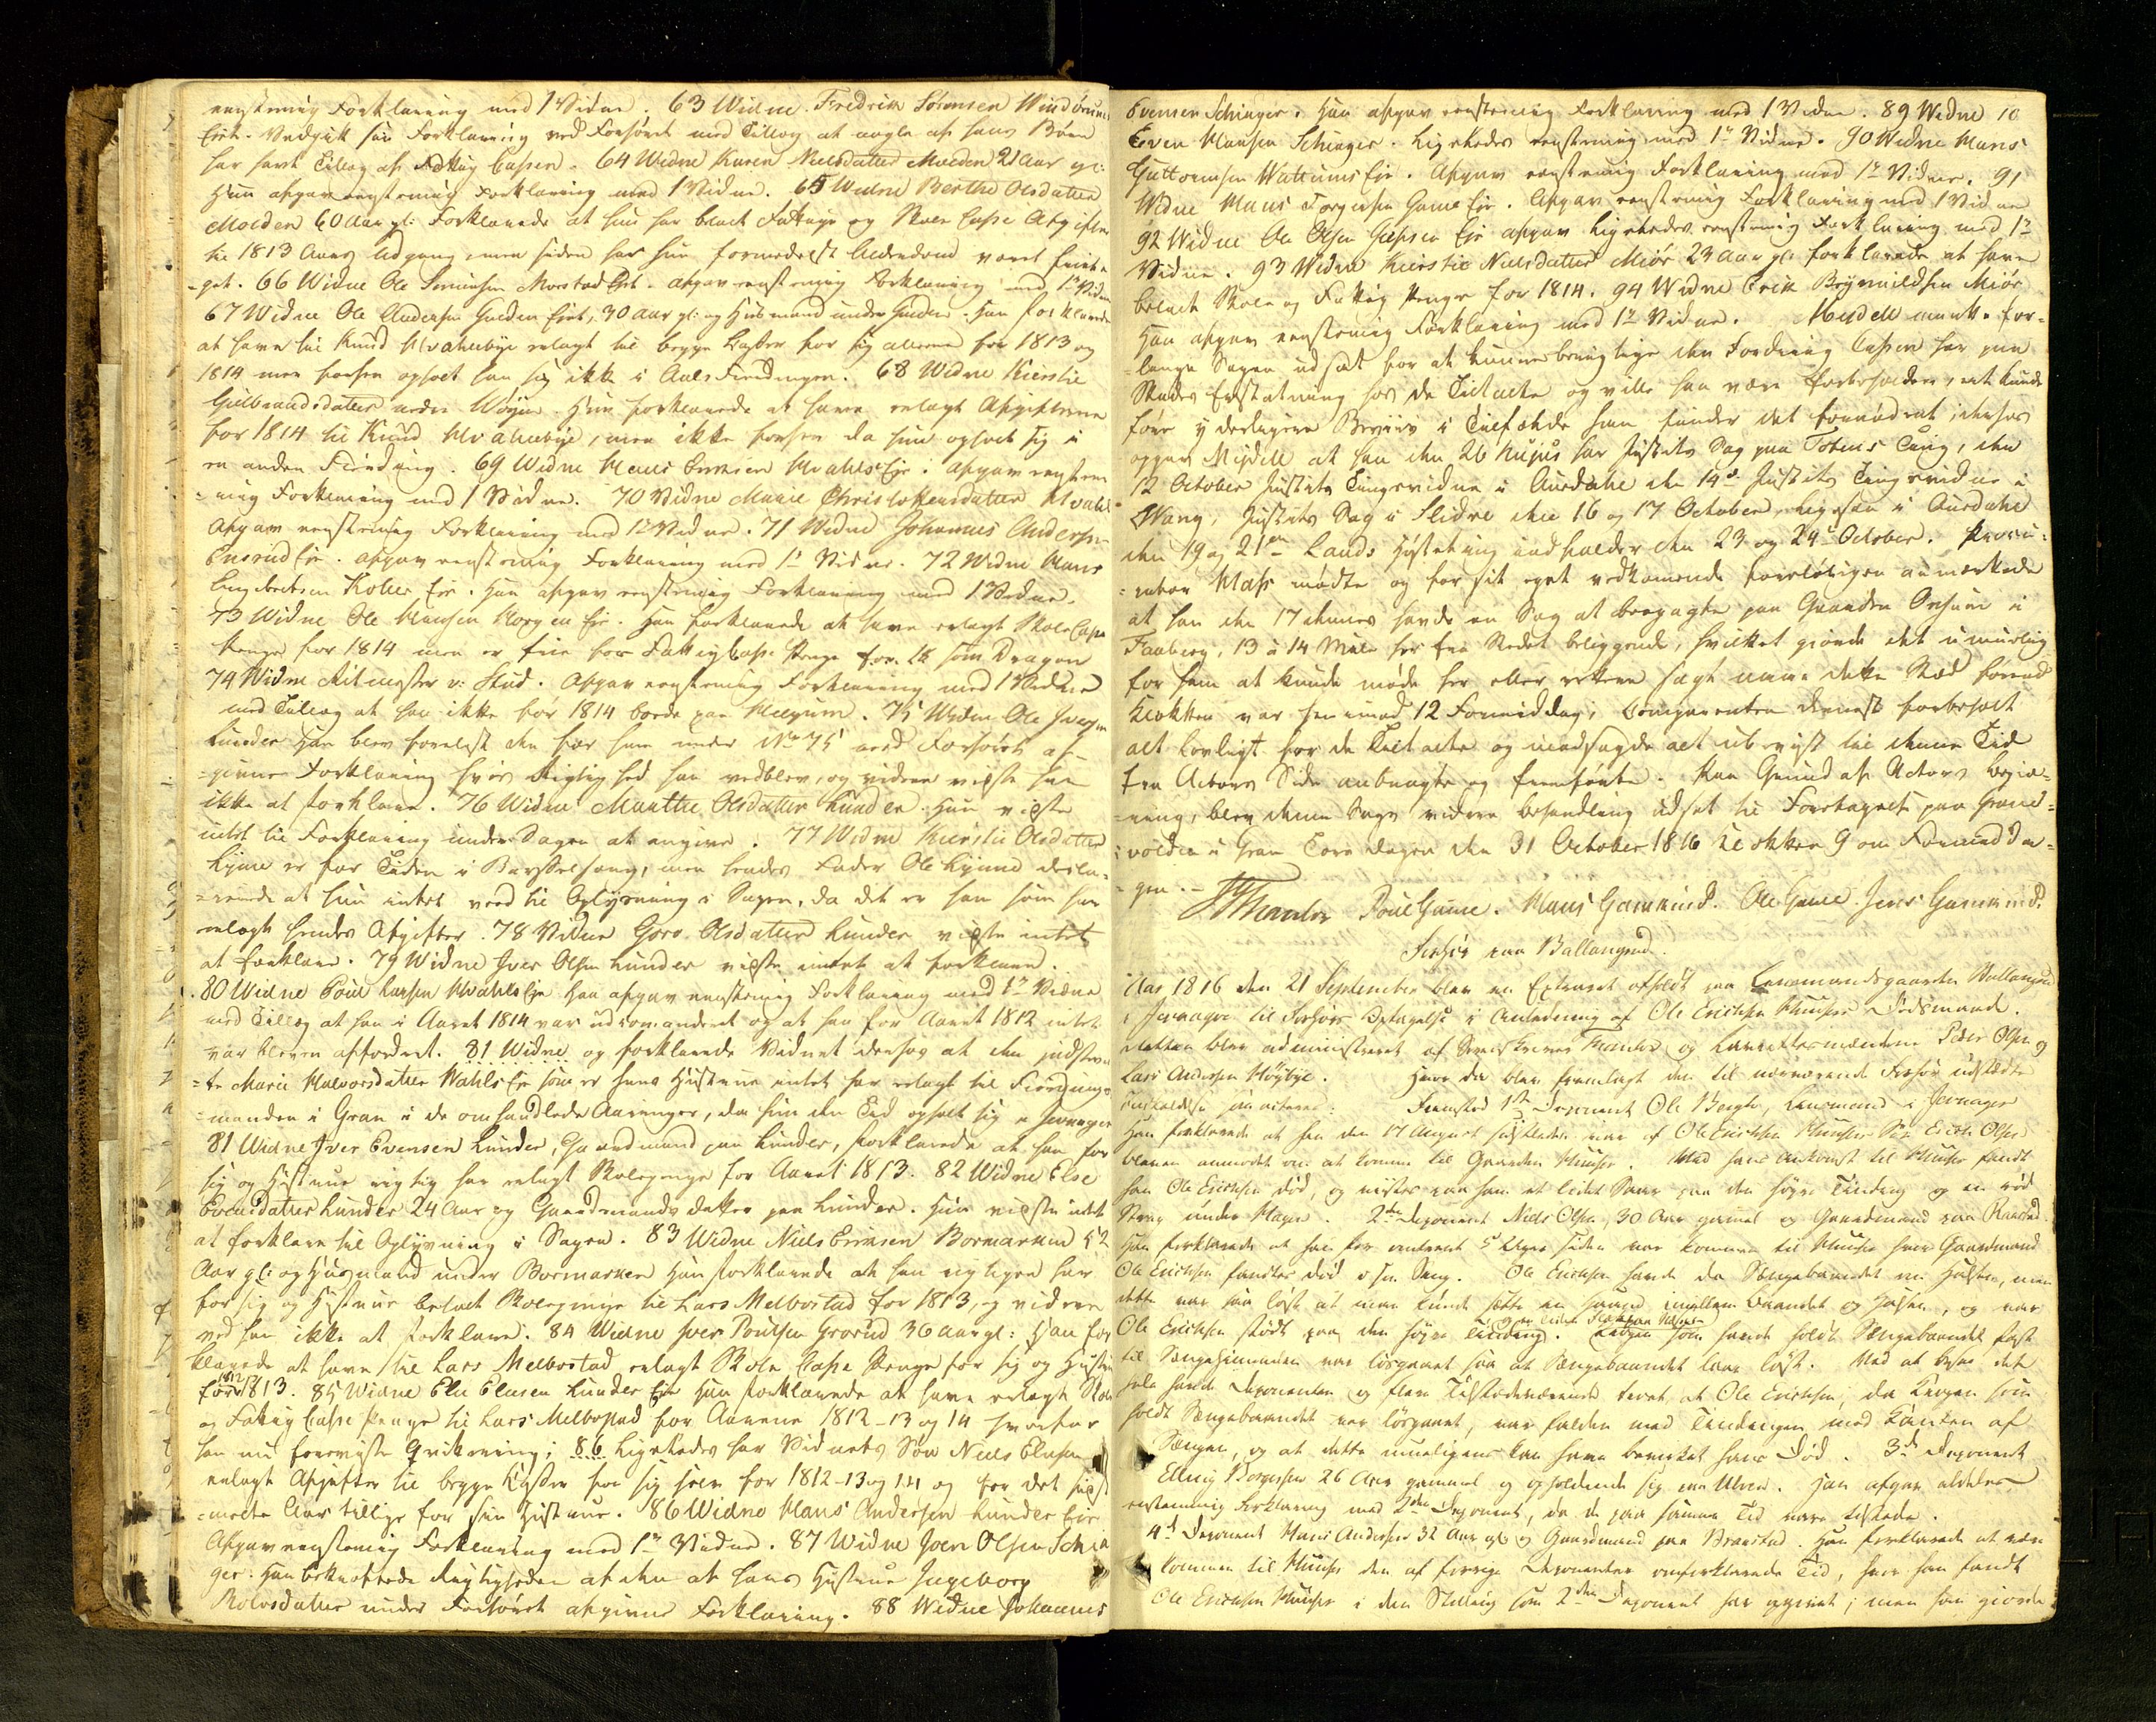 eenstemmig Forklaring med 1 Vidne. 63 Widne Fredrik Sörensen Windorum
Eiet. Vedgik sin Forklaring ved Forhöret med Tillæg at nogle af hans Börn
har havt Tillæg af Fattig Cassen. 64 Widne Karen Nielsdatter Moeden 21 Aar gl:
Hun afgav eenstemmig Forklaring med 1 Vidne. 65 Widne Berthe Olsdatter
Moeden 60 Aar gl: Forklarede at hun har betalt Fattig og Skole Casse Afgifter
til 1813 Aars Udgang, men siden har hun formedelst Alderdom været frita-
-get. 66 Widne Ole Simensen Morstad Eiet. afgav eenstemmig Forklaring med 1te Vidne
67 Widne Ole Andersen Gulden Eiet, 30 Aar gl: og Huusmand under Gulden. Han forklarede
at have til Knud Hvalebye erlagt til begge Casser for sig allene for 1813 og
1814 men forhen opholt han sig ikke i Aals Fierdingen. 68 Widne Kierstie
Gulbrandsdatter nedre Woyen. Hun forklarede at have erlagt Afgifterne
for 1814 til Knud Hvalebye, men ikke forhen da hun opholt sig i
en anden Fierding. 69 Widne Hans Hvahls Eje. afgav eenstem-
-mig Forklaring med 1 Vidne. 70 Vidne Marie Christophersdatter Hvahls
Afgav eenstemmig Forklaring med 1te Vidne. 71 Widne Johannes Andersen
Ensrud Eje. afgav eenstemmig Forklaring med 1te Vidne. 72 Widne Hans
Engebretsen Koller Eje. Han afgav eenstemmig Forklaring med 1 Vidne.
73 Widne Ole Hansen Horgen Eje. Han forklarede at have erlagt Skole Casse
Penge for 1814 men er frie for Fattig Casse Penge som Dragon
74 Widne Ritmester v: Stud. Afgav eenstemmig Forklaring med 1 Vidne
med Tillæg at han ikke for 1814 boede paa Helgum. 75 Widne Ole Iversen
Lunder Han blev forelæst den for ham under No 75 ved Forhöret af-
-givne Forklaring hvis Rigtighed han vedblev, og videre vidste han
ikke at forklare. 76 Widne Marthe Olsdatter Lunder. Hun vidste
intet til Forklaring under Sagen at angive. 77 Widne Kierstie Olsdatter
Lyme er for Tiden i Barselseng, men hendes Fader Ole Lyme decla-
-rerede at hun intet veed til Oplysning i Sagen, da det er han som har
erlagt hendes Afgifter. 78 Vidne Goro Olsdatter Lunder vidste intet
at forklare. 79 Widne Iver Olsen Lunder vidste intet at forklare.
80 Widne Poul Larsen Hvahls Eje Han afgav eenstemmig Forklaring med 1te Vidne
med Tillæg at han i Aaret 1814 var udcomanderet og at han for Aaret 1812 intet
var bleven affordret. 81 Widne og forklarede Vidnet derhos at den indstevn-
-te Marie Halvorsdatter Wahls Eje som er hans Hustrue intet har erlagt til Fierdings-
-manden i Gran i de omhandlede Aaringer, da hun den Tid opholt sig i Jevnager
81 Widne Iver Evensen Lunder, Gaardmand paa Lunder, forklarede at han for
sig og Hustrue rigtig har erlagt Skolepenge for Aaret 1813. 82 Widne Else
Evensdatter Lunder 24 Aar og Gaardmands datter paa Lunder. Hun vidste intet
at forklare til Oplysning i Sagen. 83 Widne Niels Ermsen Bormarken 52
Aar gl: og Huusmand under Bormarken Han forklarede at han rigtigen har
for sig og Hustrue betalt Skolepenge til Lars Melbostad for 1813, og videre
ved han ikke at forklare. 84 Widne Iver Poulsen Grorud 36 aar gl: Han for
klarede at have til Lars Melbostad erlagt Skole Casse Penge for sig og Hustrue
1812
for 1813. 85 Widne Elu Elusen Lunder Eje Han forklarede at have erlagt Skole
og Fattig Casse Penge til Lars Melbostad for Aarene 1812-13 og 14 hvorfor
han nu foreviste Qvitering; 86 Ligeledes har Vidnets Sön Niels Elusen
erlagt Afgifter til begge Casser for sig selv for 1812-13 og 14 og for det sidst
-meldte Aar tillige for sin Hustrue. 86 Widne Hans Andersen Lunder Eie
Afgav eenstemmig Forklaring med 1te Vidne. 87 Widne Joen Olsen Schia
ger. Han bekræftede Rigtigheden af den af hans Hustrue Ingeborg
Rolvsdatter under Forhöret afgivne Forklaring. 88 Widne Johannes
Evensen Schiager. Han afgav eenstemmig Forklaring med 1 Vidne. 89 Widne 10
Even Hansen Schiager. Ligeledes eenstemmig med 1te Vidne. 90 Widne Hans
Guttormsen Wattums Eje. Afgav eenstemmig Forklaring med 1te Vidne. 91
Widne Hans Torgersen Game Eje. Afgav eenstemmig Forklaring med 1 Vidne
92 Widne Ole Olsen Eje afgav Ligeledes eenstemmig Forklaring med 1te
Vidne. 93 Widne Kierstie Nielsdatter Miör 23 Aar gl: forklarede at have
betalt Skole og Fattig Penge for 1814. 94 Widne Erik Brynnildsen Miör
Han afgav eenstemmig Forklaring med 1te Vidne. Mydell maatte for-
-lange Sagen udsat for at kunne berigtige den Fordring Cassen har paa
Skades Erstatning hos de Tiltalte og ville han være forbeholden, at kunde
före yderligere Beviis i Tilfælde han finder det fornödent; derhos
opgav Mydell at han den 26 hujus har Justits Sag paa Totens Ting, den
12 October Justits Tingsvidne i Aurdahl den 14de Justits Tingsvidne i
Wang, Justits Sag i Slidre den 16 og 17 October, ligesaa i Aurdahl
den 19 og 21en Lands Höstting indfalder den 23 og 24de October. Procu-
-rator Mass mödte og for sit eget vedkommende foreløbigen anmærkede
at han den 17 dennes havde en Sag at besigte paa Gaarden i
Faaberg, 13 à 14 Mile her fra Stedet beliggende, hvilket giorde det umuelig
for ham at kunde möde her eller rettere sagt naae dette Sted förend
Klokken var henimod 12 Formiddag; Comparenten dernæst forbeholt
alt lovligt for de Tiltalte og modsagde alt ubeviist til denne Tid
fra Actors Side anbragte og fremförte. Paa Grund af Actors Begiæ-
-ring, blev denne Sags videre behandling udsat til Foretagelse paa Grand-
-volden i Gran Torsdagen den 31 October 1816 Klokken 9 om Formidda-
-gen. -
Poul Game. Hans Gamkind. Ole Game. Jens Gamkind.
Forhör paa Ballangrud.
Aar 1816 den 21 September blev en Extraret afholdt paa Lensmandsgaarden Ballangrud
i Jevnager til Forhörs Optagelse i Anledning af Ole Erichsen Dödsmaade.
Retten blev administreret af Sorenskriver og Laurettesmændene Peder Olsen og
Lars Andersen Höybye. Hvor da blev fremlagt den til nærværende Forhör udstædte
Indkaldelse saa lydende: Fremstod 1ste Deponent Ole Bergh, Lensmand i Jevnager
Han forklarede at han den 17 August sidstleden var af Ole Erichsen Sön Erich Olsen
bleven anmodet om at komme til Gaarden. Ved hans Ankomst til fandt
han Ole Erichsen död, og vistes paa ham et lidet Saar paa den höyre Tinding og en röd
Streg under Hagen. 2den Deponent Niels Olsen, 30 Aar gammel og Gaardmand paa
Han forklarede at han for omtrent 5 Uger siden var kommen til hvor Gaardmand
Ole Erichsen fandtes död i sin Seng. Ole Erichsen havde da Sengebaandet om Halsen, men
dette var saa löst at man kunde sætte en Haand imellem Baandet og Halsen, og var
Ole Erichsen stödt paa den höyre Tinding. Krogen som havde holdt Sengebaandet fast
til Sengehimmelen var lösgaaet saa at Sengebaandet laae löst. Ved at besee det
hele havde Deponenten og flere Tilstedeværende troet, at Ole Erichsen, da Krogen som
holdt Sengebaandet var lösgaaet, var falden med Tindingen mod Kanten af
Sengen, og at dette mueligens kan have bevirket hans Död. 3die Deponent
Elling Borgersen 26 Aar gammel og opholdende sig paa. Han afgav aldeles
eenstemmig Forklaring med 2den Deponent, da de paa samme Tid vare tilstede.
4de Deponent Hans Andersen 32 Aar gl: og Gaardmand paa Brørstad. Han forklarede at være
kommen til den af forrige Deponenter omforklarede Tid, hvor han fandt
Ole Erichsen i den Stilling som 2den Deponent har opgivet; men han giorde